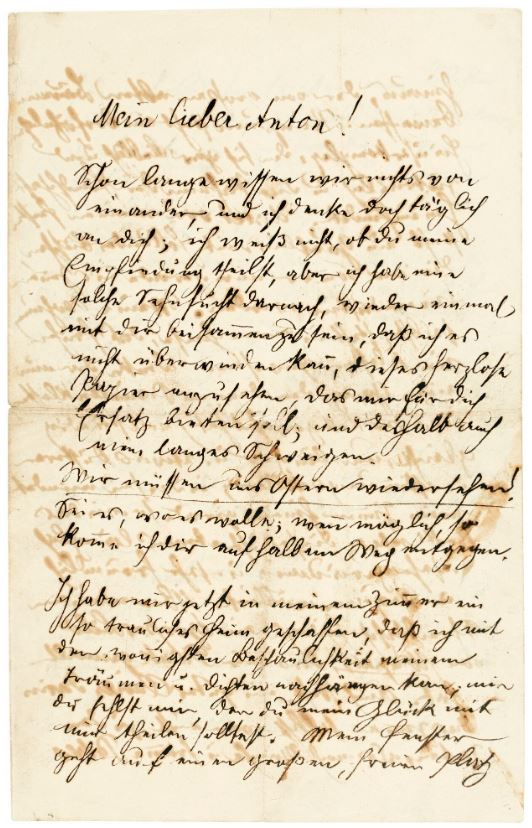 Mein lieber Anton!
Schon lange wissen wir nichts von
einander, und ich denke doch täglich
an dich; ich weiß nicht, ob du meine
Empfindung theilst, aber ich habe eine
solche Sehnsucht darnach, wieder einmal
mit dir beisammen zu sein, daß ich es
nicht überwinden kann, dieses herzlose
Papier anzusehen, das mir für dich
Ersatz bieten soll; und deßhalb auch
mein langes Schweigen.
Wir müssen uns Ostern wiedersehen!
Sei es, wo es wolle; wenn möglich, so
komme ich dir auf halbem Weg entgegen.
Ich habe mir jetzt in meinem Zimmer ein
so trauliches Heim geschaffen, daß ich mit
der wonnigsten Beschaulichkeit meinem
Träumen u. Dichten nachhängen kann, nur
du fehlst mir, der du mein Glück mit
mir theilen solltest. Mein Fenster
geht auf einen großen, freien Platz